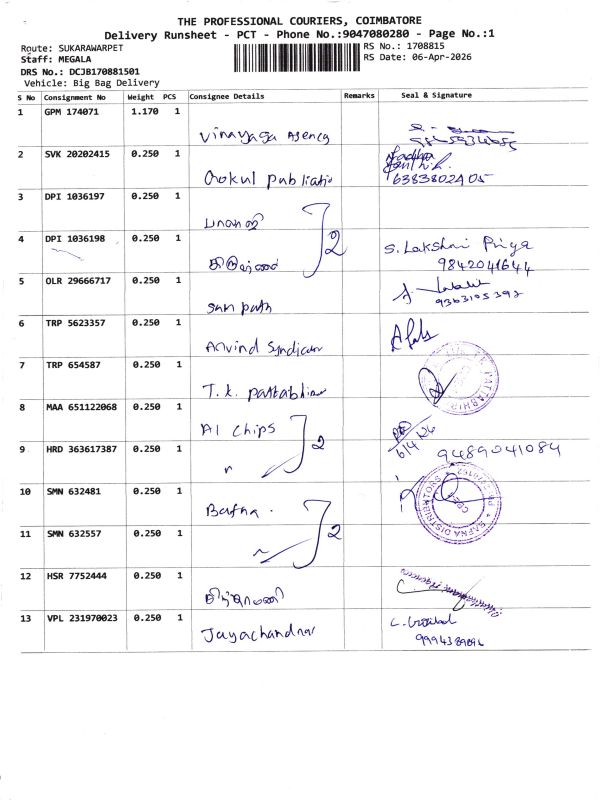 THE PROFESSIONAL COURIERS, COIMBATORE
Delivery Runsheet - PCT - Phone No.:9047080280 - Page No.:1
Route: SUKARAWARPET
RS No.: 1708815
Staff: MEGALA
RS Date: 06-Apr-2026
DRS No.: DCJB170881501
Vehicle: Big Bag Delivery
S No Consignment No Weight PCS Consignee Details Remarks Seal & Signature
1 GPM 174071 1.170 1 Vinayaga Agency
2 SVK 20202415 0.250 1 Gokul publicatio 6383802405
3 DPI 1036197 0.250 1
4 DPI 1036198 0.250 1 2 S. Lakshmi Priya
9842041644
5 OLR 29666717 0.250 1 Sampath 9363105392
6 TRP 5623357 0.250 1 Arvind Syndicate
7 TRP 654587 0.250 1 T.K. pattabhi
8 MAA 651122068 0.250 1 AI chips 6/4/26
9 HRD 363617387 0.250 1 " 2 9489041084
10 SMN 632481 0.250 1 Bafna.
BAFNA DISTRIBUTORS
11 SMN 632557 0.250 1 2
12 HSR 7752444 0.250 1
13 VPL 231970023 0.250 1 Jayachandran